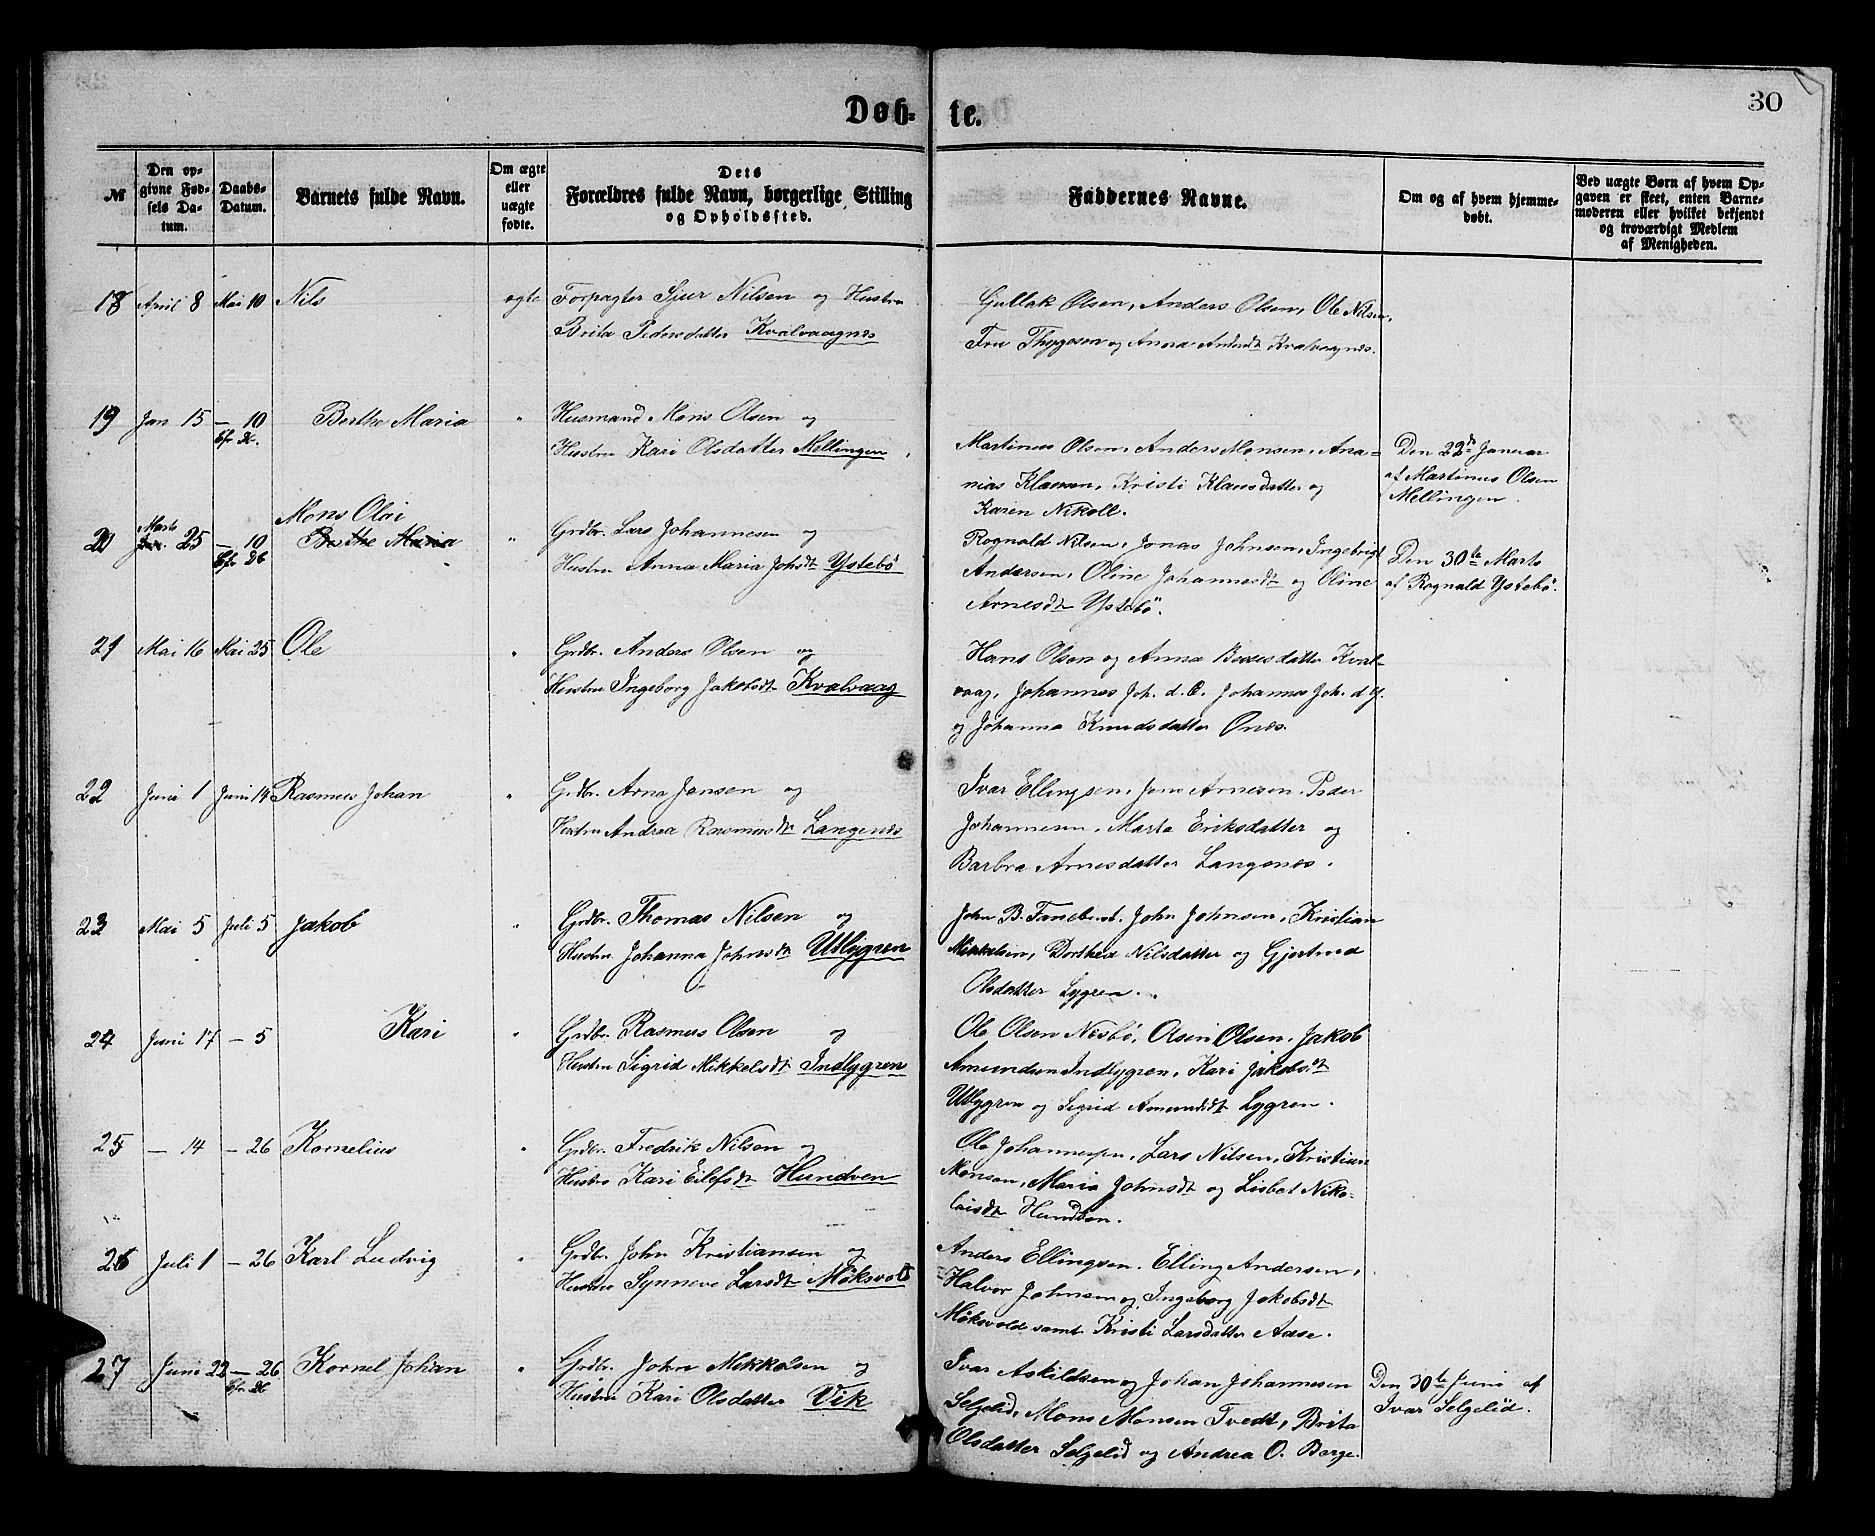 Døb-te.
30
№
Den op-
givne Fød-
sels Da-
tum.
Daabs-
Datum.
Barnets fulde Navn.
Om ægte
eller
uægte
fødte.
Dets
Forældres fulde Navn, borgerlige Stilling
og Opholdssted.
Faddernes Navne.
Om og af hvem hjemme-
døbt.
Ved uægte Børn af hvem Op-
gaven er skeet, enten Barne-
moderen eller hvilket bekjendt
og troværdigt Medlem
af Menigheden.
18 April 8 Mai 10 Nils ægte Forpagter Sjur Nilsen og Hustru
Brita Pedersdatter Kvalvaagnes
Gullak Olsen, Anders Olsen, Ole Nilsen,
Fru Thygesen og Anna Andersdt Kvalvaagnes.
19 Jan 15 — 10 Berthe Maria " Husmand Mons Olsen og
Hustru Kari Olsdatter Mellingen
Martinus Olsen, Anders Monsen, Ana=
nias Klausen, Kristi Klausdatter og
Karen Nikoll.
Den 22de Januar
af Martinus Olsen
Mellingen.
20 Marts 25 — 10 Mons Olai
Berthe Maria " Grdbr. Lars Johannesen og
Hustru Anna Maria Johsdt Ystebö
Rognald Nilsen, Jonas Johnsen, Ingebrigt
Andersen, Oline Johannesdt og Oline
Arnesdt Ystebö.
Den 30te Marts
af Rognald Ystebö.
21 Mai 16 Mai 25 Ole " Grdbr. Anders Olsen og
Hustru Ingeborg Jakobsdt Kvalvaag
Hans Olsen og Anna Bersesdatter Kval-
vaag, Johannes Joh. d. E. Johannes Joh. d y.
og Johanna Knudsdatter Ones.
22 Juni 1 Juni 14 Rasmus Johan " Grdbr. Arna Jansen og
Hustru Andrea Rasmusdt Langenes
Ivar Ellingsen, Jens Arnesen, Peder
Johannesen, Marta Eriksdatter og
Barbra Arnesdatter Langenes.
23 Mai 5 Juli 5 Jakob " Grdbr. Thomas Nilsen og
Hustru Johanna Johnsdt Utlygren
John B. Tonebust, John Johnsen, Kristian
Mikkelsen, Dorthea Nilsdatter og Gjertrud
Olsdatter Lygren.
24 Juni 17 — 5 Kari " Grdbr. Rasmus Olsen og
Hustru Sigrid Mikkelsdt Indlygren
Ole Olsen Nesbö, Olsen Olsen, Jakob
Amundsen Indlygren, Kari Jakobsdt
Utlygren og Sigrid Amundsdt Lygren.
25 — 14 — 26 Kornelius " Grdbr. Fredrik Nilsen og
Hustru Kari Eilefsdt Hundven
Ole Johannesen, Lars Nilsen, Kristian
Monsen, Maria Johnsdt og Lisbet Niko-
laisdt Hundven.
26 Juli 1 — 26 Karl Ludvig " Grdbr. John Kristiansen og
Hustru Synneve Larsdt Möksvold
Anders Ellingsen, Elling Andersen,
Halvor Johnsen og Ingeborg Jakobsdt
Möksvold samt Kristi Larsdatter Aase.
27 Juni 22 — 26 Kornel Johan " Grdbr. John Mikkelsen og
Hustru Kari Olsdatter Vik
Ivar Askildsen og Johan Johannesen
Selgelid, Mons Monsen Tvedt, Brita
Olsdatter Selgelid og Andrea O. Berge.
Den 30te Juni af
Ivar Selgelid.